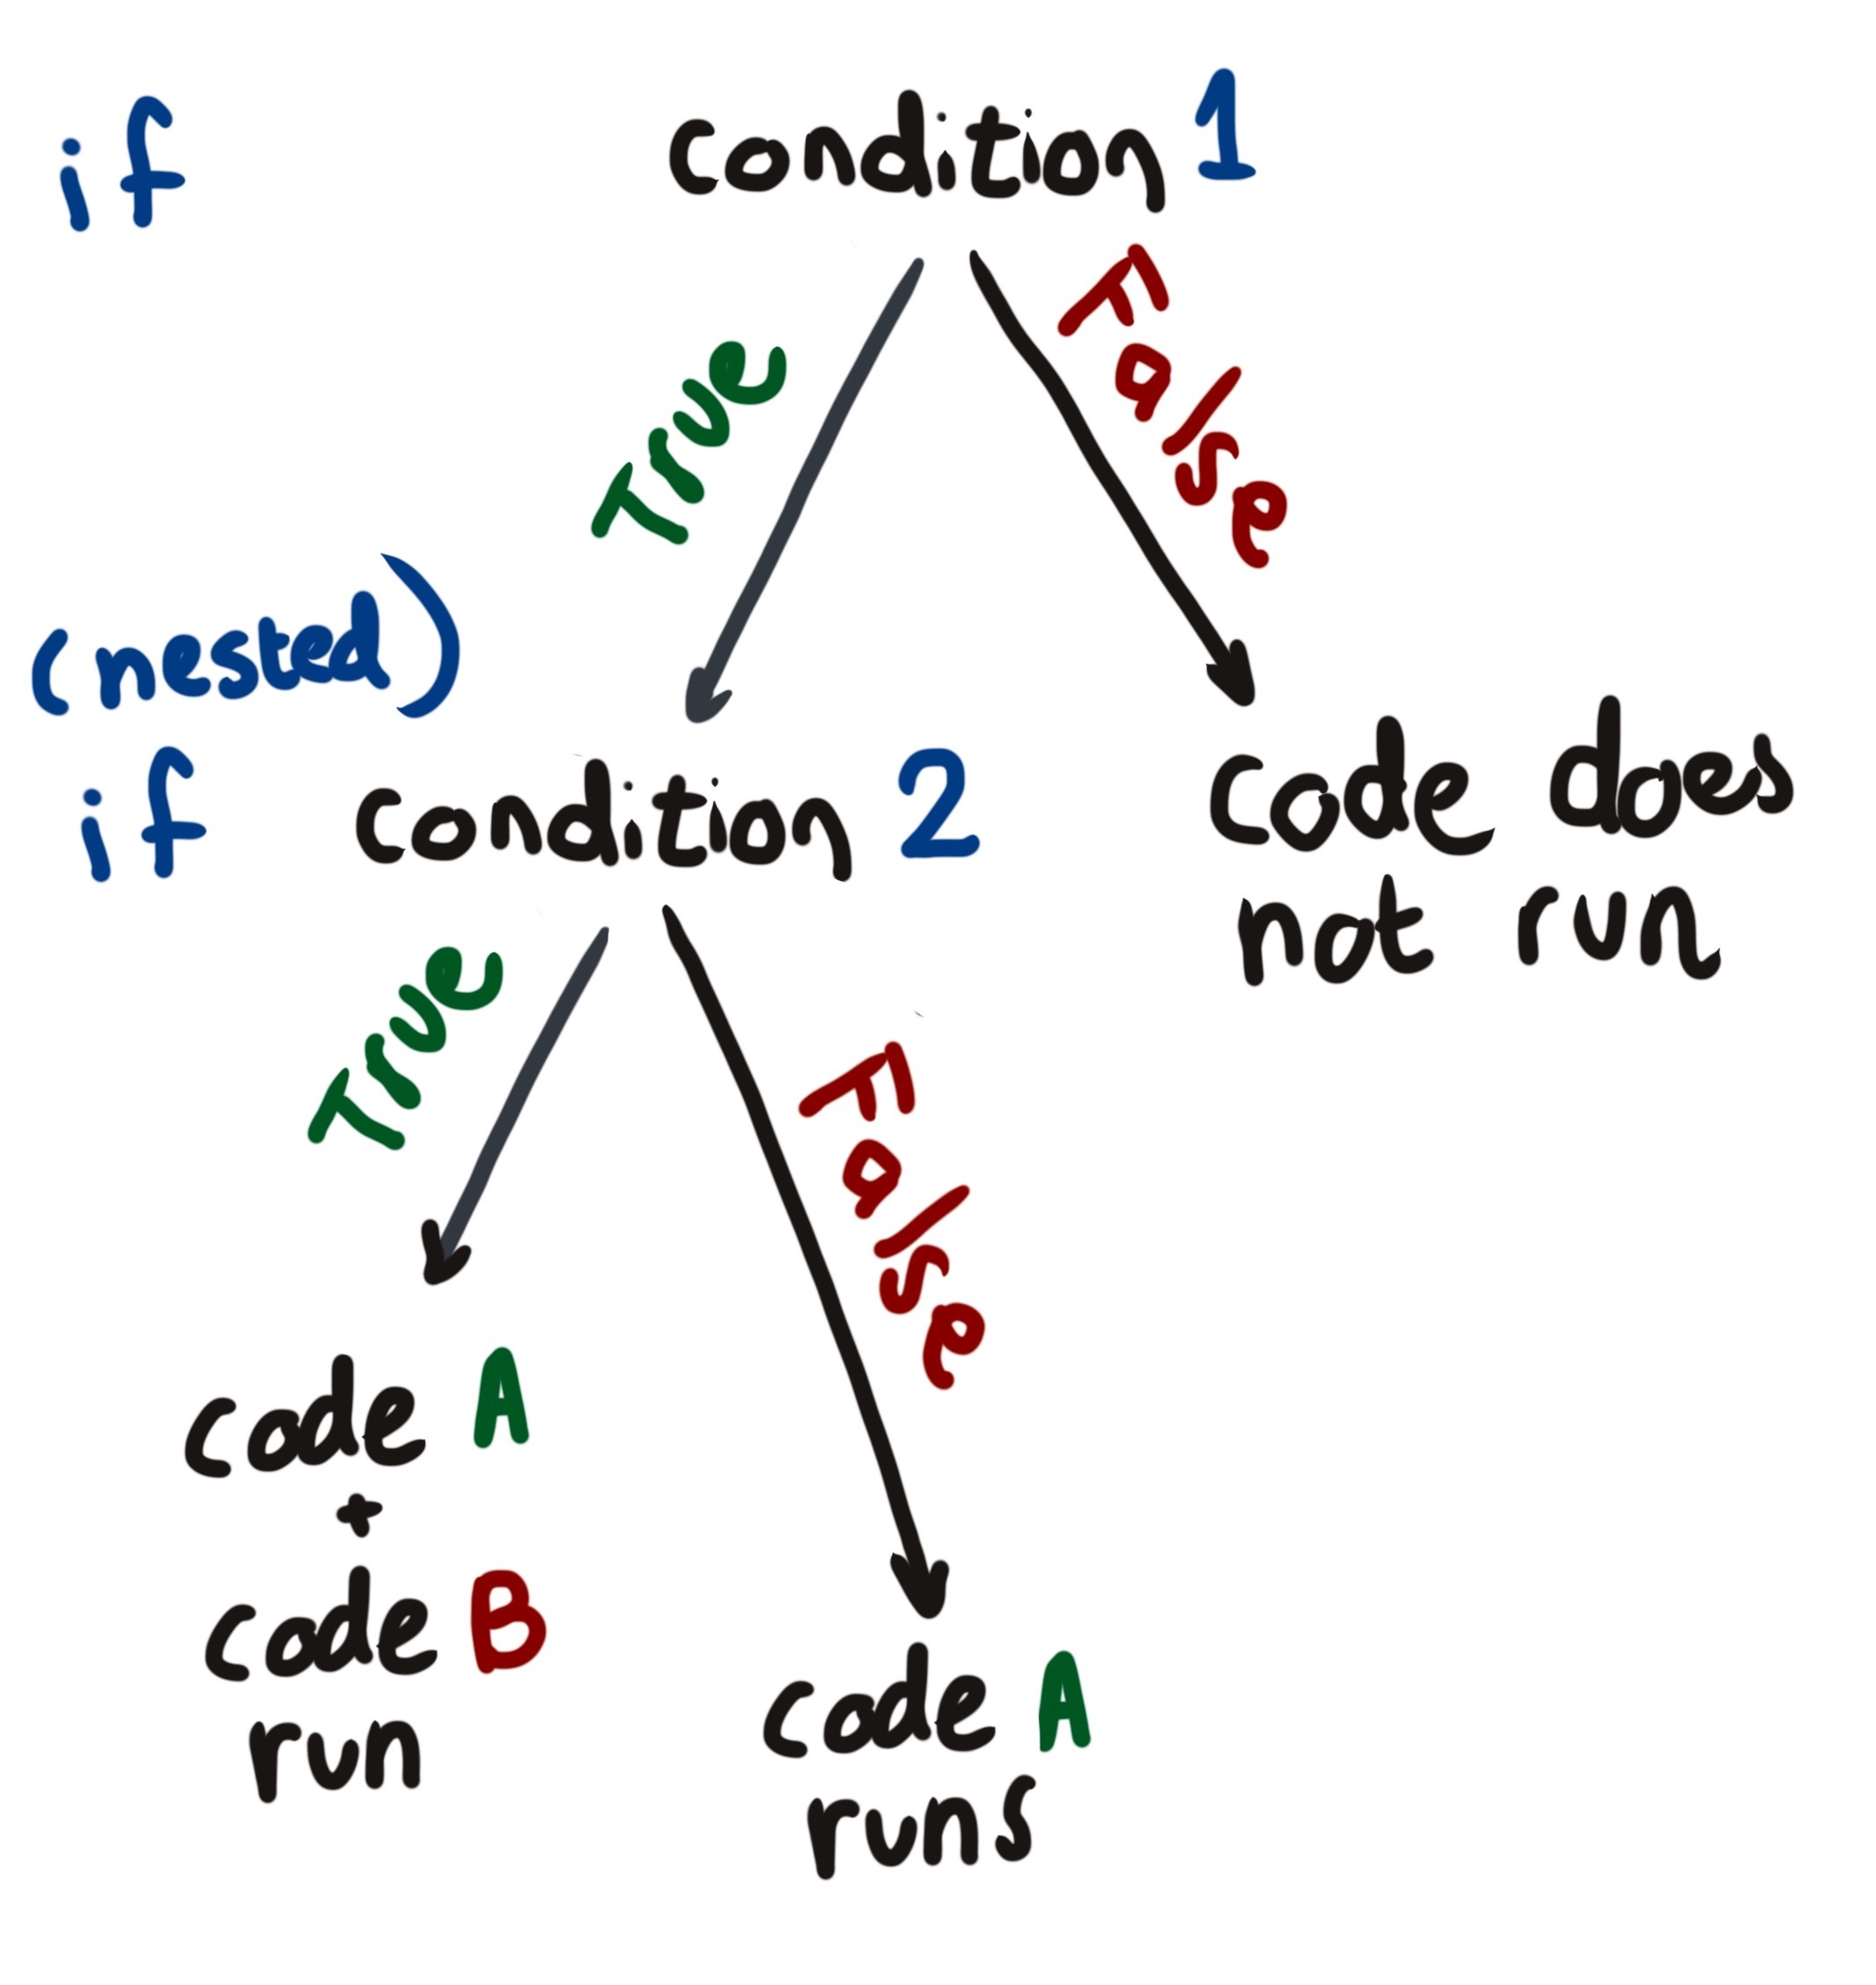 if condition 1
True
False
(nested)
if condition 2
code does
not run
True
False
code A
+
code B
run
code A
runs